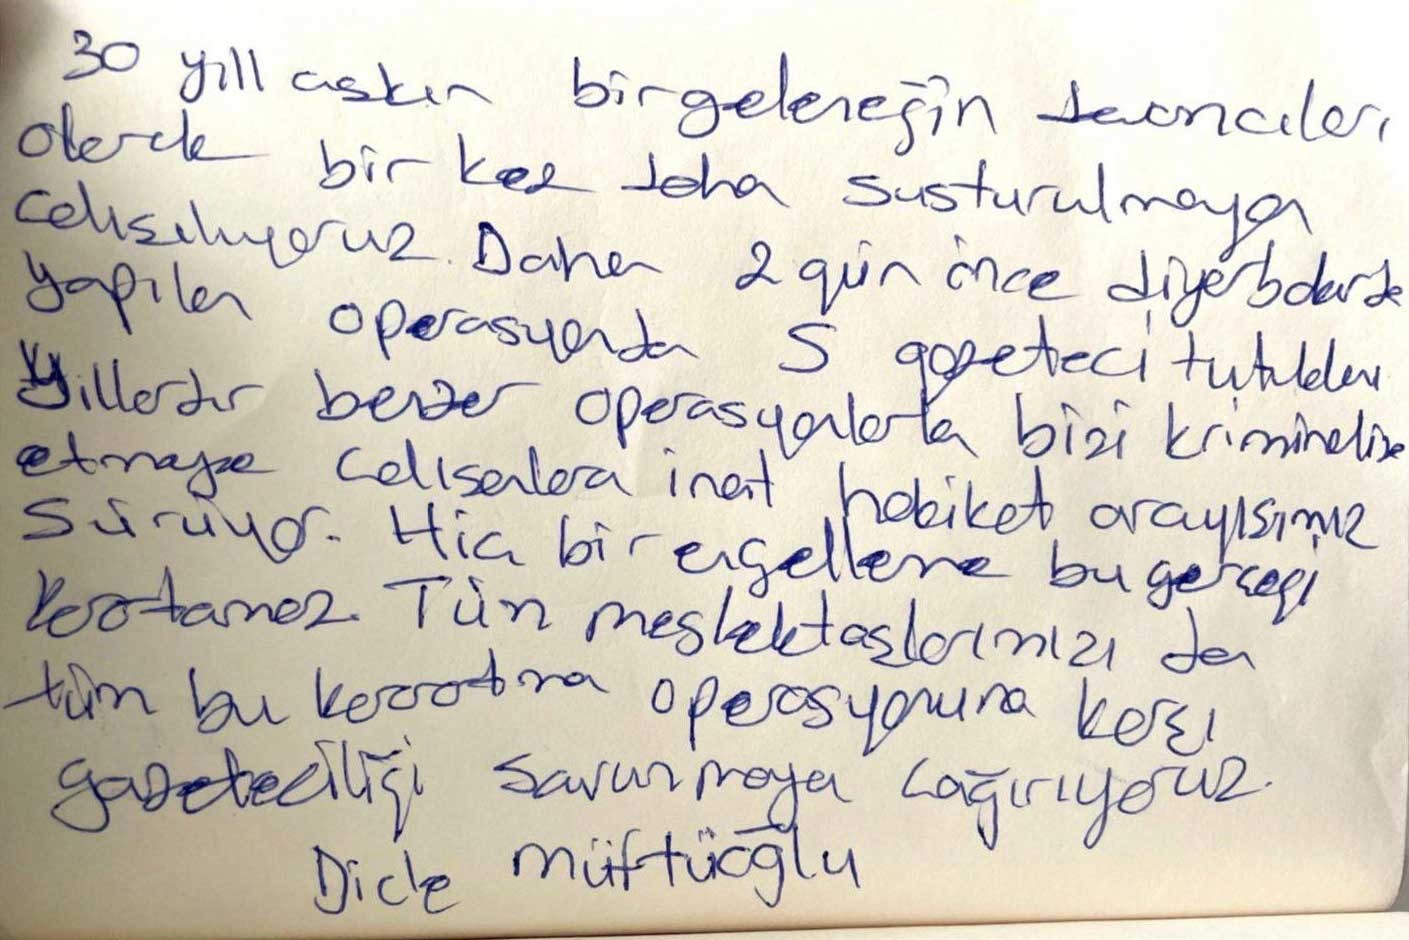 30 yıllı aşkın bir geleneğin savunucuları
olarak bir kez daha susturulmaya
çalışılıyoruz. Daha 2 gün önce diyarbakırda
yapılan operasyonda 5 gazeteci tutuklandı
Yıllardır benzer operasyonlarla bizi kriminalize
etmeye çalışanlara inat hakikat arayışımız
sürüyor. Hiç bir engelleme bu gerçeği
karartamaz. Tüm meslektaşlarımızı da
tüm bu karartma operasyonuna karşı
gazeteciliği savunmaya çağırıyoruz.
Dicle Müftüoğlu